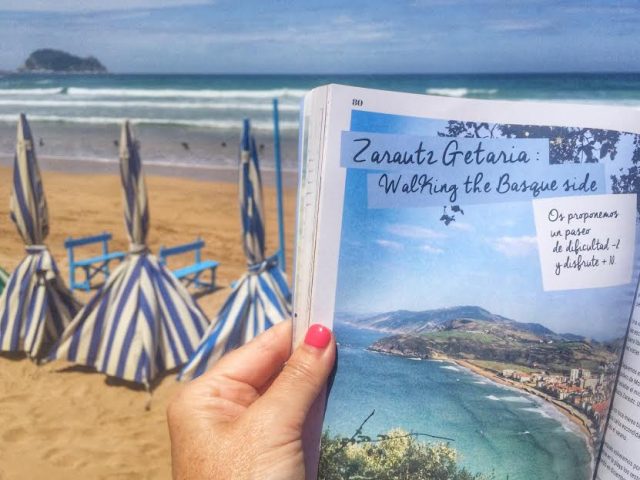 80
Zarautz Getaria:
Walking the Basque side
Os proponemos
un paseo
de dificultad -2
y disfrute + 10.